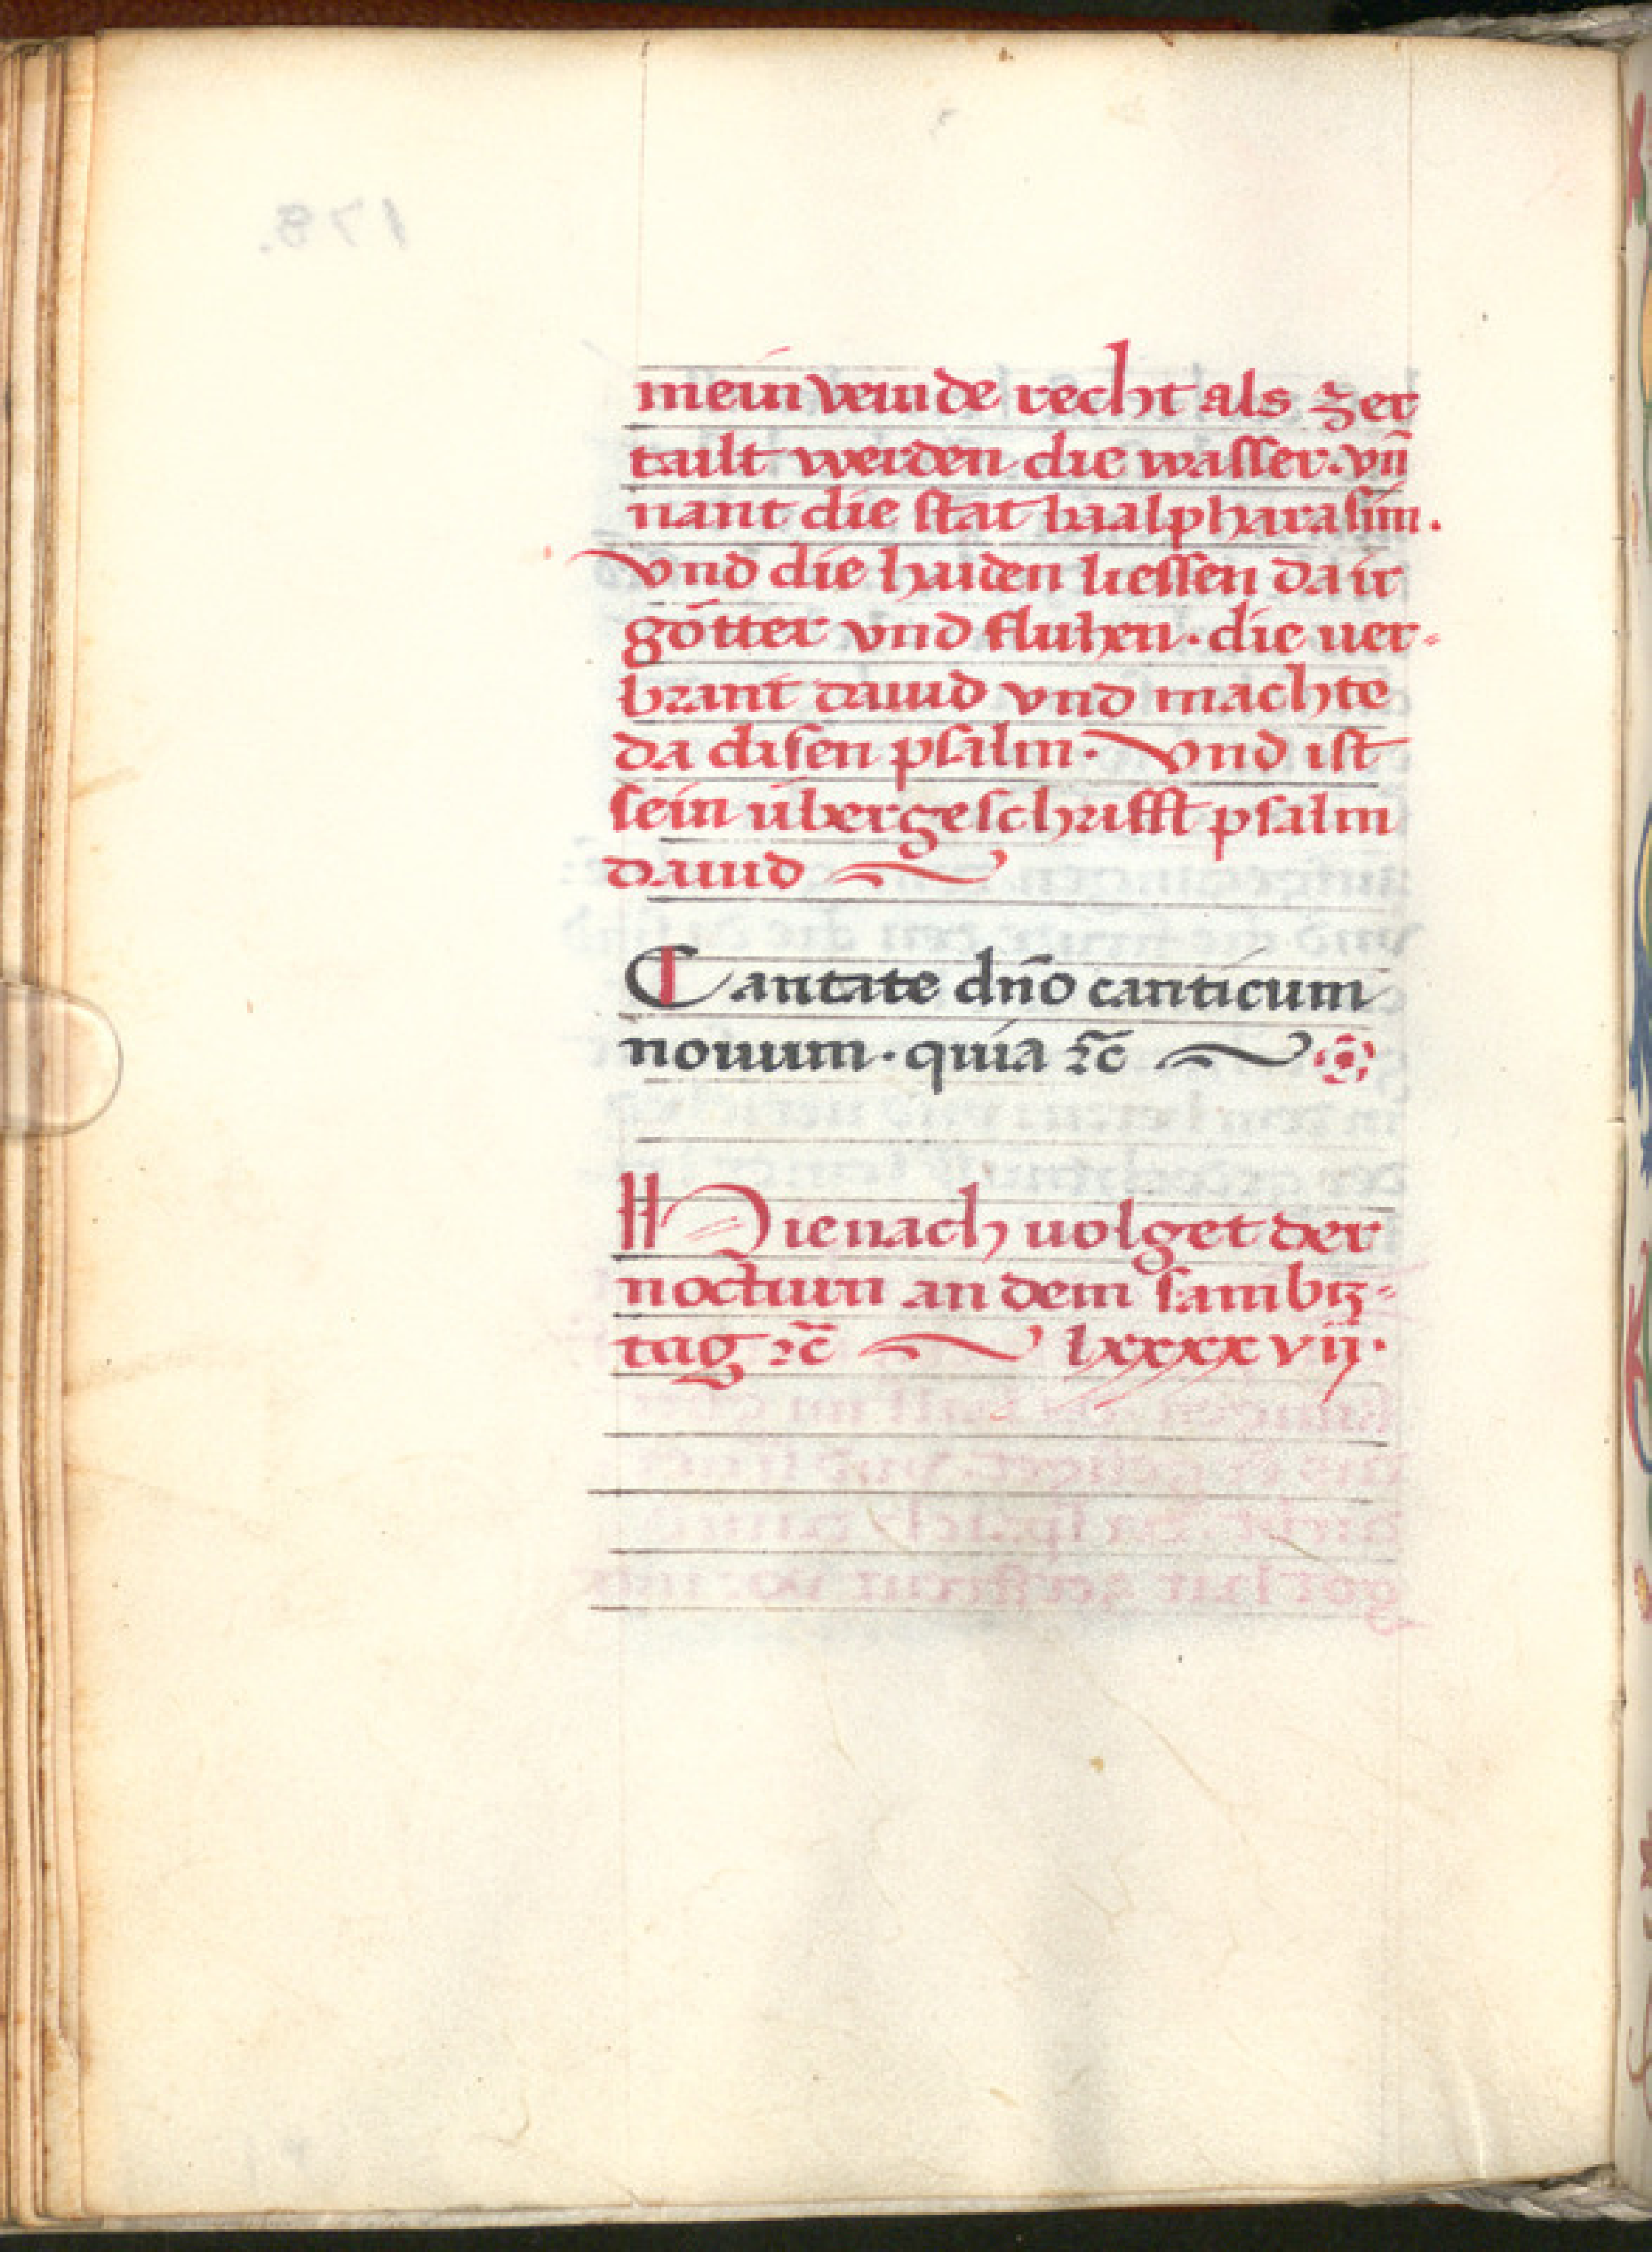 mein veinde recht als zer
tailt werden die wasser. vn̄
nant die stat baalpharasim.
vnd die haiden liessen da ir
götter vnd fluhen. die uer-
brant dauid vnd machte
da disen psalm. Vnd ist
sein übergeschrifft psalm
dauid
Cantate dn̄o canticum
nouum. quia ⁊c̄
Hienach uolget der
nocturn an dem sambtz-
tag ⁊c̄ lxxxxvij.